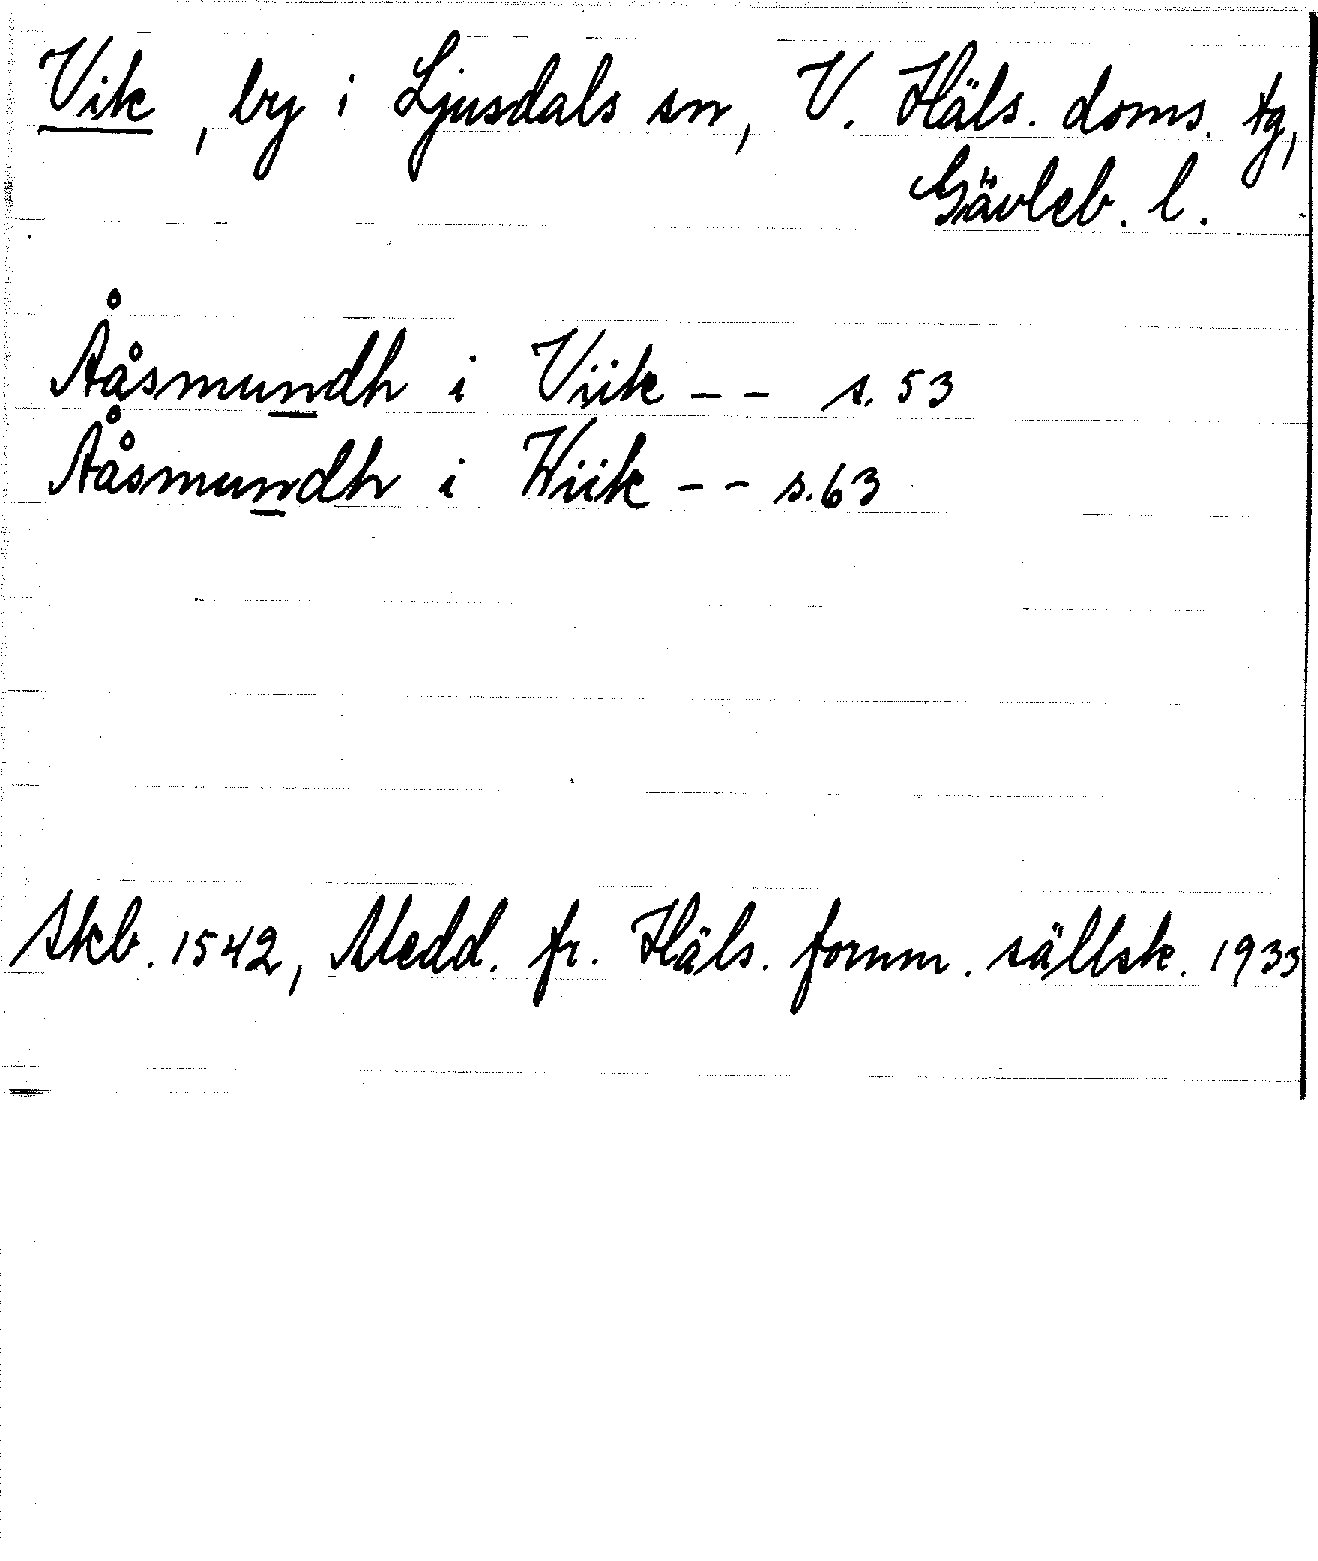 Vik, by i Ljusdals sn, V. Häls. doms. tg,
Gävleb. l.
Ååsmundh i Viik -- s. 53
Ååsmundh i Wiik -- s. 63
Skb. 1542, Medd. fr. Häls. fornm. sällsk. 1933